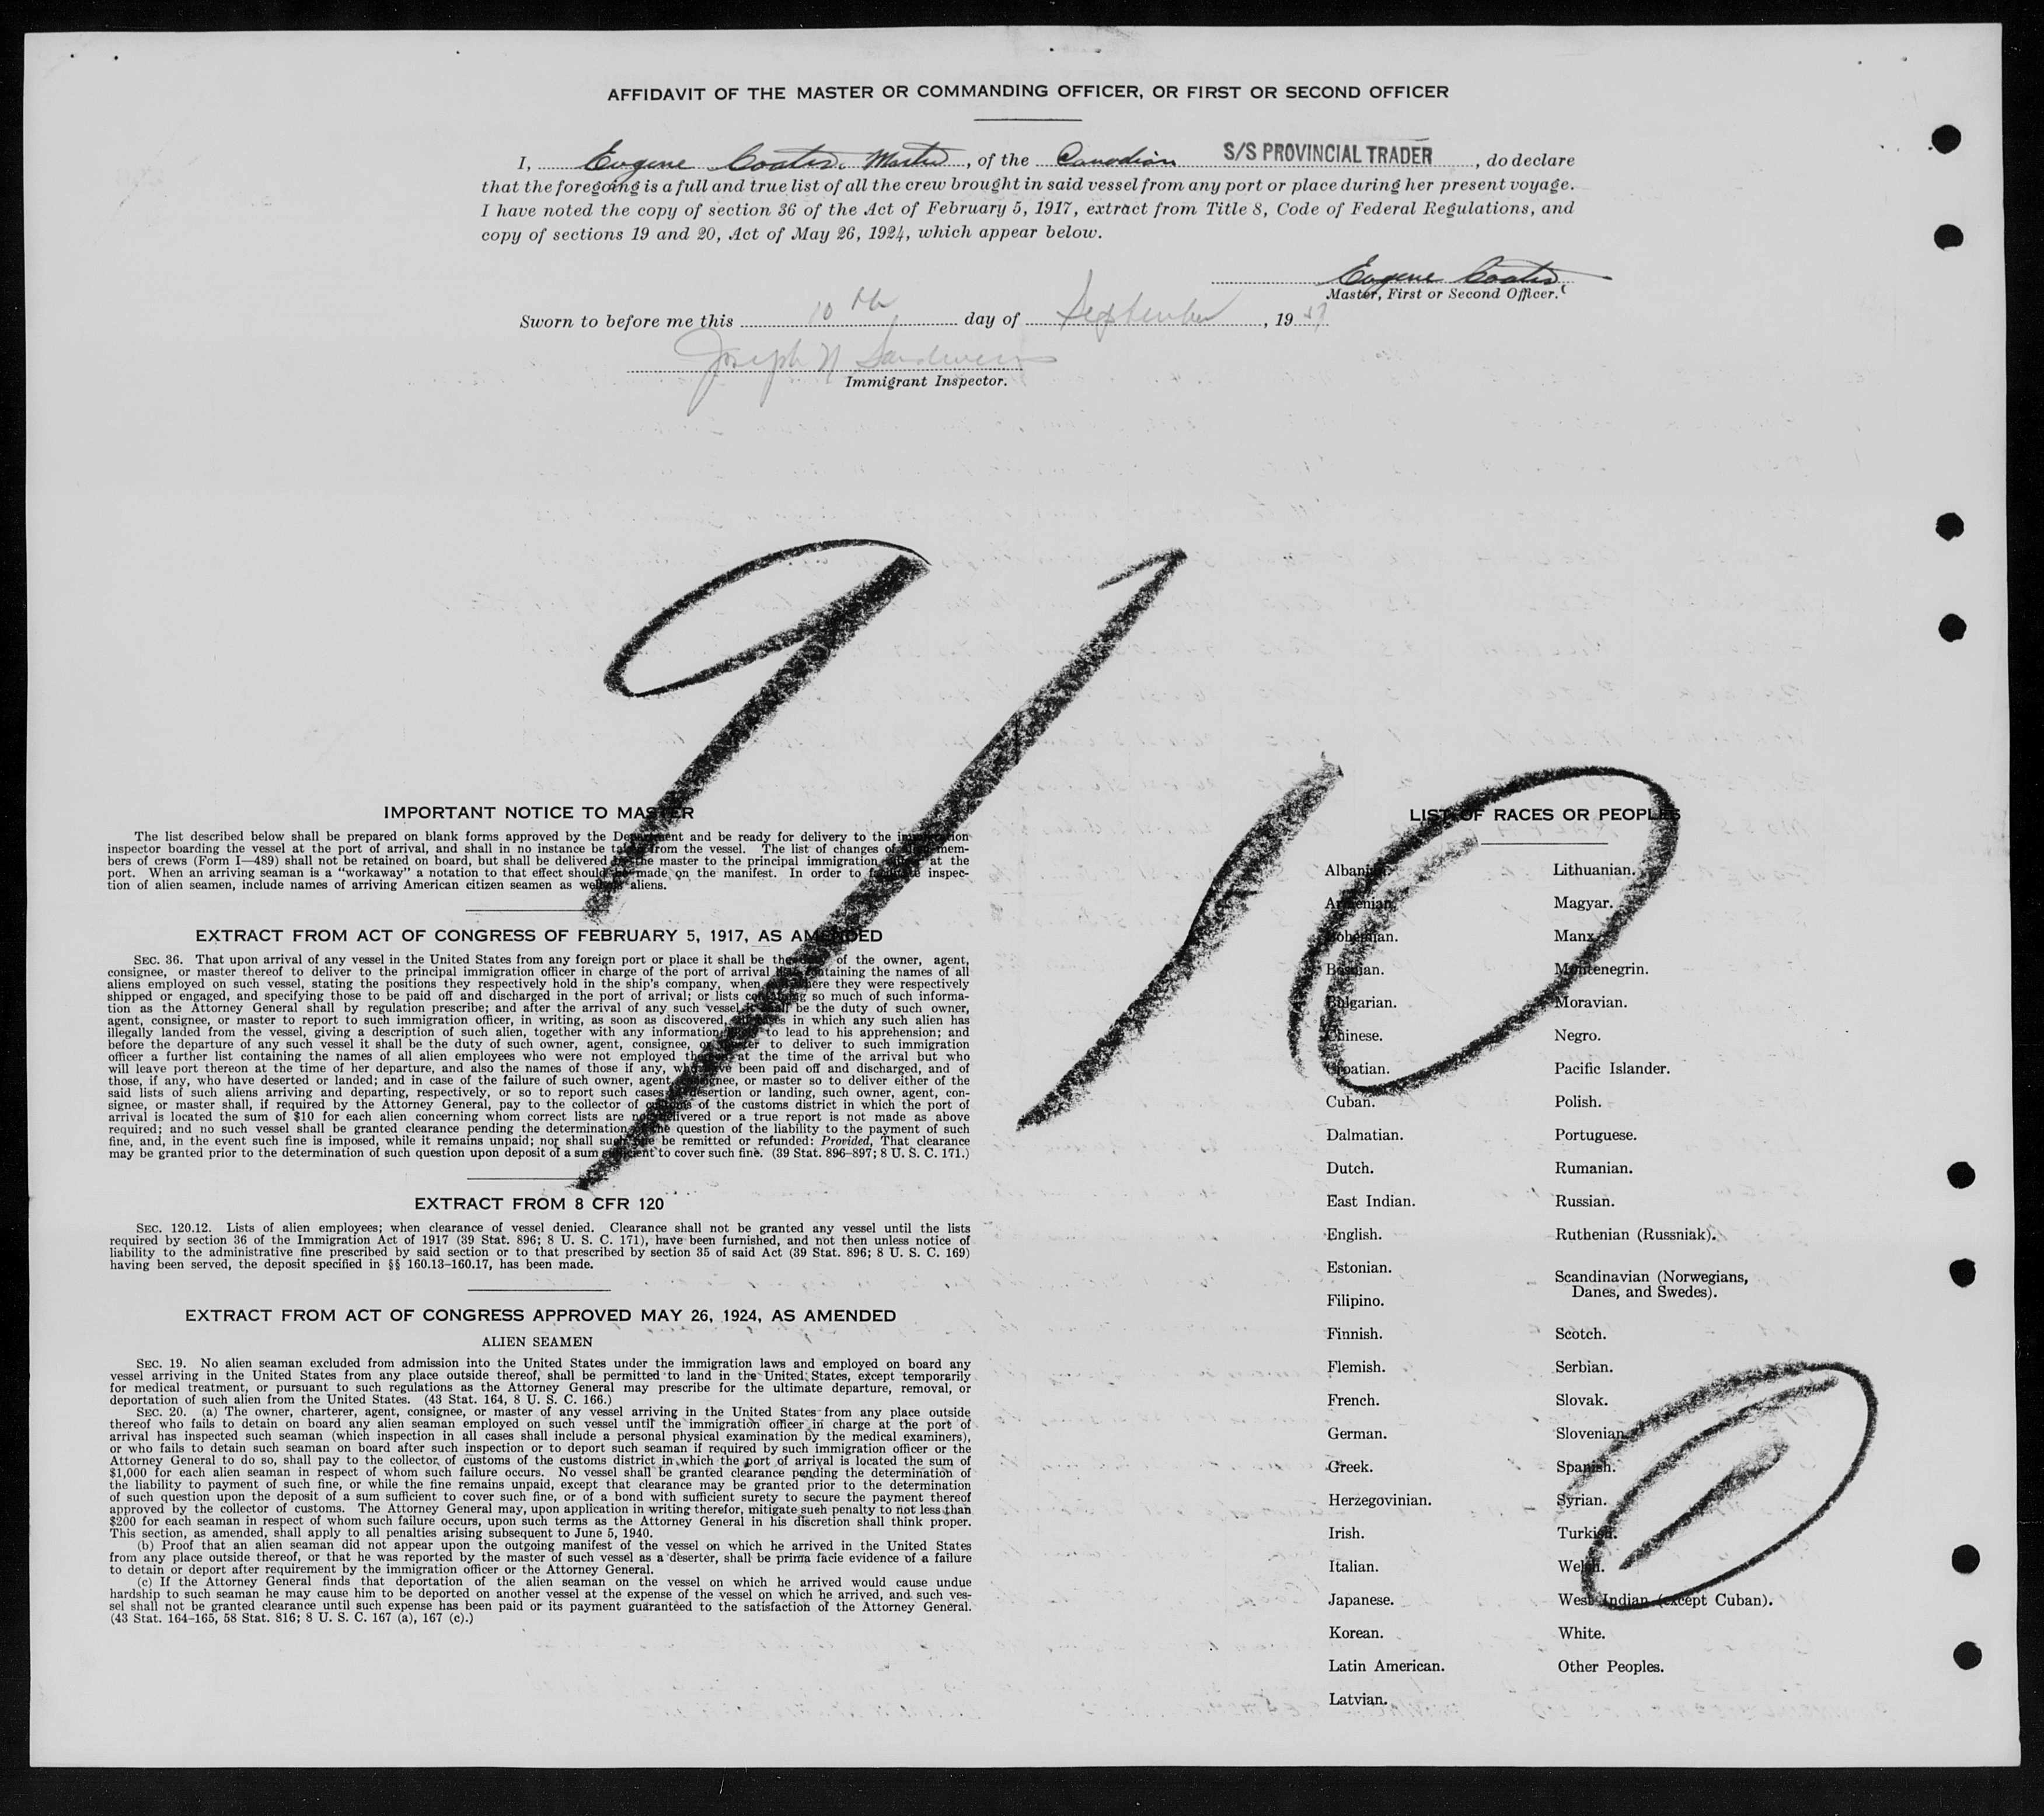 AFFIDAVIT OF THE MASTER OR COMMANDING OFFICER, OR FIRST OR SECOND OFFICER
I, Eugene Coates, Master, of the Canadian S/S PROVINCIAL TRADER, do declare
that the foregoing is a full and true list of all the crew brought in said vessel from any port or place during her present voyage.
I have noted the copy of section 36 of the Act of February 5, 1917, extract from Title 8, Code of Federal Regulations, and
copy of sections 19 and 20, Act of May 26, 1924, which appear below.
Eugene Coates
Master, First or Second Officer.
Sworn to before me this 10th day of September, 19
Joseph N
Immigrant Inspector.
9/10
IMPORTANT NOTICE TO MASTER
The list described below shall be prepared on blank forms approved by the Department and be ready for delivery to the immigration
inspector boarding the vessel at the port of arrival, and shall in no instance be taken from the vessel. The list of changes of mem-
bers of crews (Form I—489) shall not be retained on board, but shall be delivered by the master to the principal immigration at the
port. When an arriving seaman is a "workaway" a notation to that effect should be made on the manifest. In order to facilitate inspec-
tion of alien seamen, include names of arriving American citizen seamen as well as aliens.
EXTRACT FROM ACT OF CONGRESS OF FEBRUARY 5, 1917, AS AMENDED
SEC. 36. That upon arrival of any vessel in the United States from any foreign port or place it shall be the duty of the owner, agent,
consignee, or master thereof to deliver to the principal immigration officer in charge of the port of arrival lists containing the names of all
aliens employed on such vessel, stating the positions they respectively hold in the ship's company, when and where they were respectively
shipped or engaged, and specifying those to be paid off and discharged in the port of arrival; or lists containing so much of such informa-
tion as the Attorney General shall by regulation prescribe; and after the arrival of any such vessel it shall be the duty of such owner,
agent, consignee, or master to report to such immigration officer, in writing, as soon as discovered, all cases in which any such alien has
illegally landed from the vessel, giving a description of such alien, together with any information likely to lead to his apprehension; and
before the departure of any such vessel it shall be the duty of such owner, agent, consignee, or master to deliver to such immigration
officer a further list containing the names of all alien employees who were not employed thereon at the time of the arrival but who
will leave port thereon at the time of her departure, and also the names of those if any, who have been paid off and discharged, and of
those, if any, who have deserted or landed; and in case of the failure of such owner, agent, consignee, or master so to deliver either of the
said lists of such aliens arriving and departing, respectively, or so to report such cases of desertion or landing, such owner, agent, con-
signee, or master, shall, if required by the Attorney General, pay to the collector of customs of the customs district in which the port of
arrival is located the sum of $10 for each alien concerning whom correct lists are not delivered or a true report is not made as above
required; and no such vessel shall be granted clearance pending the determination of the question of the liability to the payment of such
fine, and, in the event such fine is imposed, while it remains unpaid; nor shall such fine be remitted or refunded: Provided, That clearance
may be granted prior to the determination of such question upon deposit of a sum sufficient to cover such fine. (39 Stat. 896–897; 8 U. S. C. 171.)
EXTRACT FROM 8 CFR 120
SEC. 120.12. Lists of alien employees; when clearance of vessel denied. Clearance shall not be granted any vessel until the lists
required by section 36 of the Immigration Act of 1917 (39 Stat. 896; 8 U. S. C. 171), have been furnished, and not then unless notice of
liability to the administrative fine prescribed by said section or to that prescribed by section 35 of said Act (39 Stat. 896; 8 U. S. C. 169)
having been served, the deposit specified in §§ 160.13–160.17, has been made.
EXTRACT FROM ACT OF CONGRESS APPROVED MAY 26, 1924, AS AMENDED
ALIEN SEAMEN
SEC. 19. No alien seaman excluded from admission into the United States under the immigration laws and employed on board any
vessel arriving in the United States from any place outside thereof, shall be permitted to land in the United States, except temporarily
for medical treatment, or pursuant to such regulations as the Attorney General may prescribe for the ultimate departure, removal, or
deportation of such alien from the United States. (43 Stat. 164, 8 U. S. C. 166.)
SEC. 20. (a) The owner, charterer, agent, consignee, or master of any vessel arriving in the United States from any place outside
thereof who fails to detain on board any alien seaman employed on such vessel until the immigration officer in charge at the port of
arrival has inspected such seaman (which inspection in all cases shall include a personal physical examination by the medical examiners),
or who fails to detain such seaman on board after such inspection or to deport such seaman if required by such immigration officer or the
Attorney General to do so, shall pay to the collector of customs of the customs district in which the port of arrival is located the sum of
$1,000 for each alien seaman in respect of whom such failure occurs. No vessel shall be granted clearance pending the determination of
the liability to payment of such fine, or while the fine remains unpaid, except that clearance may be granted prior to the determination
of such question upon the deposit of a sum sufficient to cover such fine, or of a bond with sufficient surety to secure the payment thereof
approved by the collector of customs. The Attorney General may, upon application in writing therefor, mitigate such penalty to not less than
$200 for each seaman in respect of whom such failure occurs, upon such terms as the Attorney General in his discretion shall think proper.
This section, as amended, shall apply to all penalties arising subsequent to June 5, 1940.
(b) Proof that an alien seaman did not appear upon the outgoing manifest of the vessel on which he arrived in the United States
from any place outside thereof, or that he was reported by the master of such vessel as a deserter, shall be prima facie evidence of a failure
to detain or deport after requirement by the immigration officer or the Attorney General.
(c) If the Attorney General finds that deportation of the alien seaman on the vessel on which he arrived would cause undue
hardship to such seaman he may cause him to be deported on another vessel at the expense of the vessel on which he arrived, and such ves-
sel shall not be granted clearance until such expense has been paid or its payment guaranteed to the satisfaction of the Attorney General.
(43 Stat. 164–165, 58 Stat. 816; 8 U. S. C. 167 (a), 167 (c).)
LIST OF RACES OR PEOPLES
Albanian.
Armenian.
Bohemian.
Bosnian.
Bulgarian.
Chinese.
Croatian.
Cuban.
Dalmatian.
Dutch.
East Indian.
English.
Estonian.
Filipino.
Finnish.
Flemish.
French.
German.
Greek.
Herzegovinian.
Irish.
Italian.
Japanese.
Korean.
Latin American.
Latvian.
Lithuanian.
Magyar.
Manx.
Montenegrin.
Moravian.
Negro.
Pacific Islander.
Polish.
Portuguese.
Rumanian.
Russian.
Ruthenian (Russniak).
Scandinavian (Norwegians,
Danes, and Swedes).
Scotch.
Serbian.
Slovak.
Slovenian.
Spanish.
Syrian.
Turkish.
Welsh.
West Indian (except Cuban).
White.
Other Peoples.
1